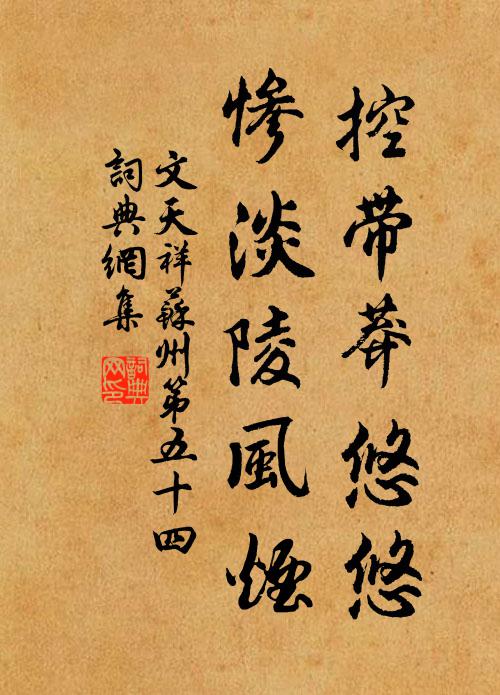 控帶莽悠悠
慘淡陵風煙
文天祥蘇州第五十四
詞典網集
詞典网印